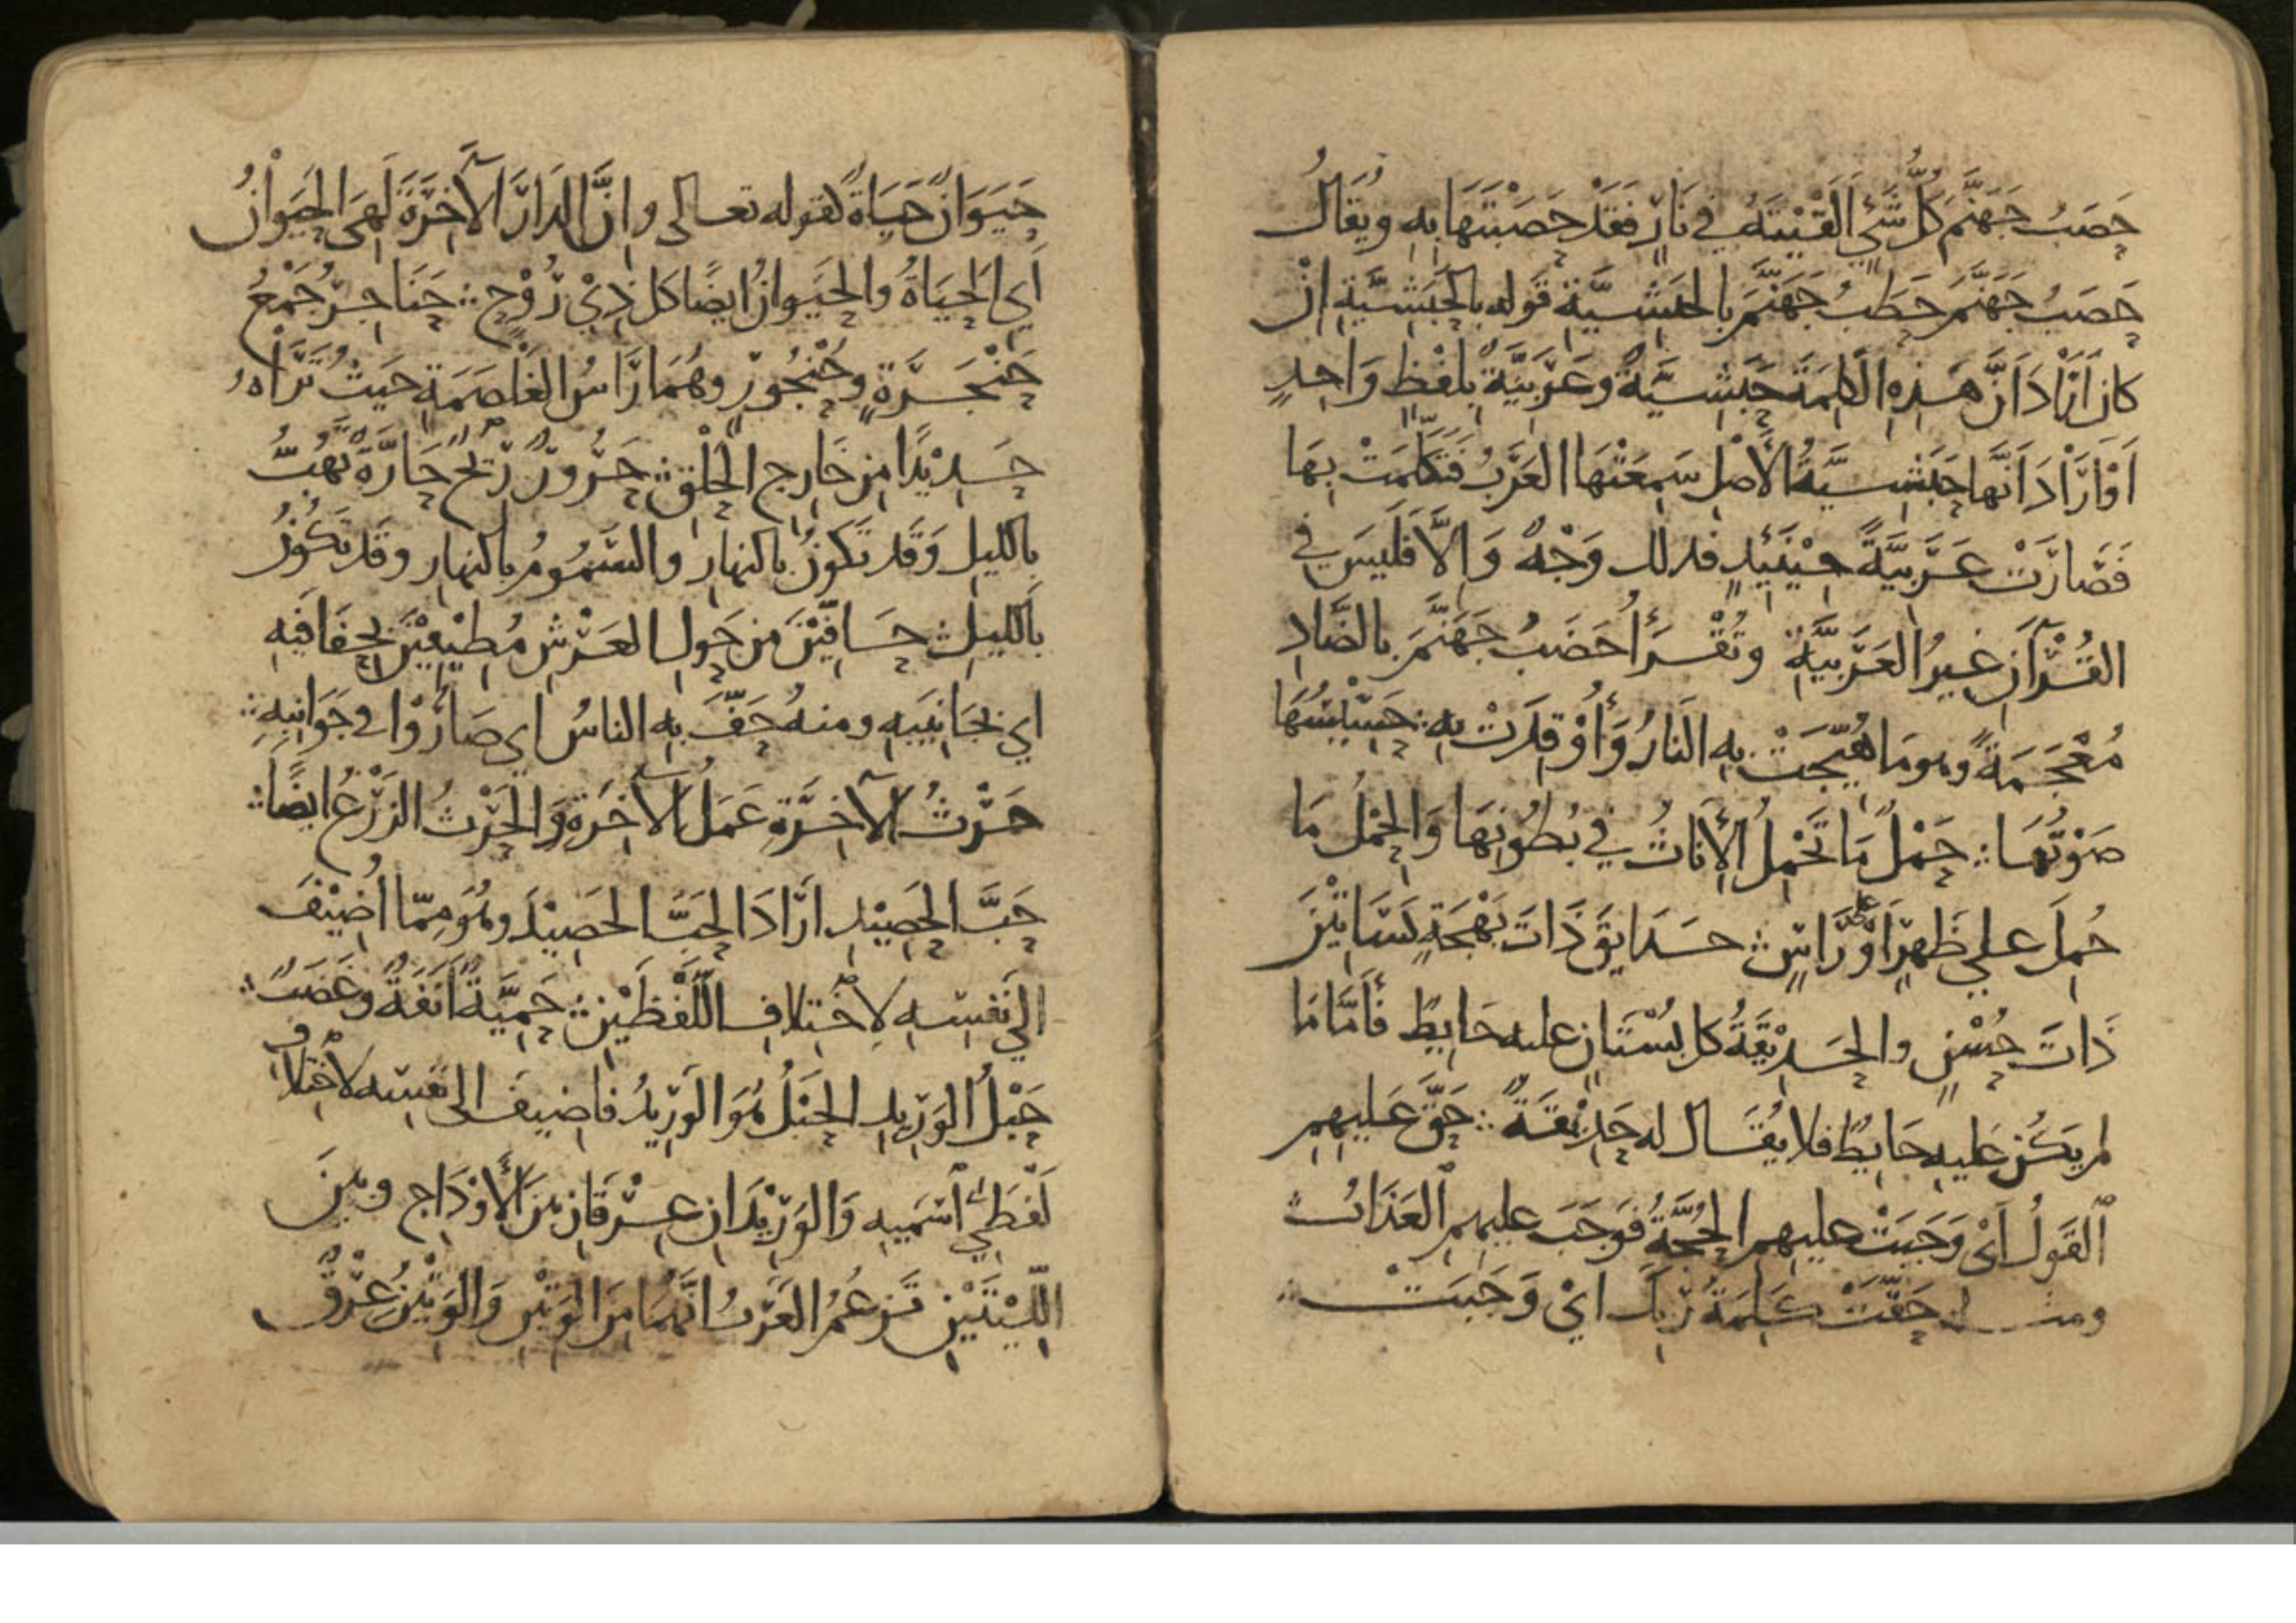 حَصَبُ جَهَنَّمَ كُلُّ شَيْءٍ أَلْقَيْتَهُ في نَارٍ فَقَدْ حَصَبْتَهَا بِهِ وَيُقَالُ
حَصَبُ جَهَنَّمَ حَطَبُ جَهَنَّمَ بِالحَبَشِيَّةِ قَوله بِالْحَبَشِيَّةِ اِنْ
كان اَرَادَ اَنَّ هَذِهِ الْكَلِمَةَ حَبَشِيَّةٌ وَعَرَبِيَّةٌ بِلَفْظٍ وَاحِدٍ
اَوْ اَرَادَ اَنَّهَا حَبَشِيَّةُ الأَصْلِ سَمِعَتْهَا العَرَبُ فَتَكَلَّمَتْ بِهَا
فَصَارَتْ عَرَبِيَّةً حِيْنَئِذٍ فذلك وَجْهٌ وَإِلاَّ فَلَيسَ في
القُرْآنِ غيرُ العَرَبِيَّةِ وتُقْرَأُ حَضَبُ جَهَنَّمَ بالضَّادِ
مُعْجَمَةً وهو مَا هُيِّجَتْ بِهِ النَارُ وَأُوْقِدَتْ بِهِ ∴ حَسِيْسَهَا
صَوْتَهَا ∴ حَمْلٌ مَا تَحْمِلُ الإِنَاثُ في بُطُونِهَا وَالحِمْلُ مَا
حُمِلَ على ظَهْرٍ اَوْ على رَاسٍ ∴ حَدَايِقَ ذَاتَ بَهْجَةٍ بَسَاتِيْنَ
ذَاتَ حُسْنٍ والحَدِيْقَةُ كل بُسْتَانٍ عليه حَايِطٌ فَأَمَّا مَا
لم يَكُنْ عَليهِ حَايِطٌ فلا يُقَالُ له حَدِيْقَةٌ ∴ حَقَّ عَلَيهِمِ
ٱلقَولُ اَيْ وَجَبَتْ عليهم الحُجَّةُ فَوَجَبَ عليهِمِ ٱلعَذَابُ ∴
ومثله حَقَّتْ كَلِمَةُ رَبِّكَ ايْ وَجَبَتْ ∴
حَيَوَانٌ حَيَاةٌ كقوله تعالى وانَّ الدَارَ الآخِرَةَ لَهِيَ الحَيَوَانُ
أَيِ الحَيَاةُ والحَيَوانُ ايضًا كل ذِيْ رُوْحٍ ∴ حَنَاجِرُ جَمْعُ
حَنْجَرَةٍ وحُنْجُورٍ وهُمَا رَاسُ الغَلْصَمَةِ حَيثُ تَرَاهُ
حَدِيْدًا مِن خَارِجِ الحَلْقِ ∴ حَرُورٌ رِيْحٌ حَارَّةٌ تَهُبُّ
بِالليلِ وَقَد تَكونُ بالنهارِ والسَّمُومُ بالنهارِ وقَد تَكُوْنُ
بالليلِ ∴ حَافِّيْنَ من حَولِ العَرْشِ مُطِيْفِيْنَ بِحِفَافَيْهِ
اي بجَانِبَيهِ ومنهُ حَفَّ بِهِ الناسُ اي صَارُوْا في جَوَانِبِهِ ∴
حَرْثُ الآخِرَةِ عَمَلُ الآخِرَةِ وَالحَرْثُ الزَرْعُ ايضًا ∴
حَبَّ الحَصِيْدِ ارَادَ الحَبَّ الحَصِيْدَ وهُوَ مِمّا أُضِيْفَ
الي نَفْسِهِ لاِخْتِلافِ اللَّفْظَيْنِ ∴ حَمِيَّةٌ اَنَفَةٌ وغَضَبٌ ∴
حَبْلُ الوَرِيدِ الحَبْلُ هُوَ الوَرِيدُ فاُضِيفَ الى نفسِه لاخْتِلافِ
لَفْظَيْ ٱسْمَيهِ وَالوَرِيْدَانِ عِرْقَانِ بينَ الأَوْدَاجِ وبينَ
اللَّبَّتَيْنِ تَزعُمُ العَرَبُ انَّهُمَا مِنَ الوَتِيْنِ وَالوَتِيْنُ عِرْقٌ